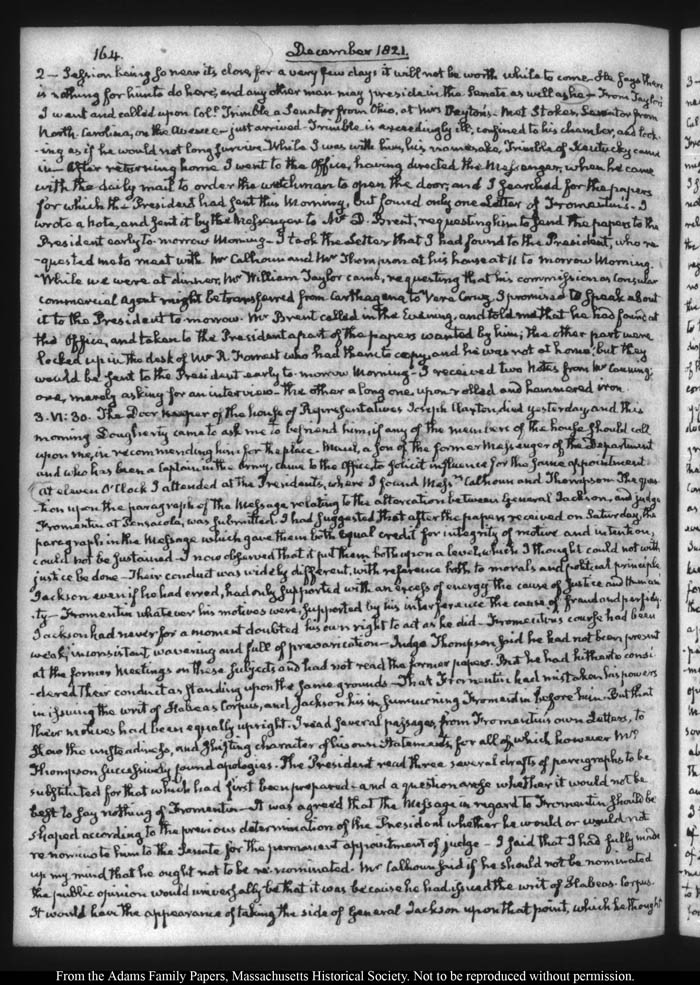 164.
December 1821.
2 — Session being so near its close, for a very few days it will not be worth while to come. He says there
is nothing for him to do here, and any other man may preside in the Senate as well as he — From Taylor's
I went and called upon Colˡ Trimble a Senator from Ohio, at Mrs Peyton's. Met Stokes, Senator from
North Carolina, on the Avenue — just arrived. Trimble is exceedingly ill, confined to his chamber, and look-
-ing as if he would not long survive. While I was with him, his namesake, Trimble of Kentucky came
in — After returning home I went to the Office, having directed the Messenger, when he came
with the daily mail to order the watchman to open the door; and I searched for the papers
for which the President had sent this Morning, but found only one Letter of Fromentin's. I
wrote a Note, and sent it by the Messenger to Mr D. Brent, requesting him to send the papers to the
President early to-morrow Morning — I took the Letter that I had found to the President, who re-
-quested me to meet with Mr Calhoun and Mr Thompson at his house at 11 to morrow Morning.
While we were at dinner, Mr William Taylor came, requesting that his commission as Consular
commercial Agent might be transferred from Carthagena to Vera Cruz. I promised to speak about
it to the President to-morrow. Mr Brent called in the Evening, and told me that he had found at
the Office, and taken to the President a part of the papers wanted by him; the other part were
locked up in the desk of Mr R. Forrest who had them to copy, and he was not at home; but they
would be sent to the President early to-morrow Morning — I received two Notes from Mr Canning;
one, merely asking for an interview — the other a long one, upon rolled and hammered iron.
3. VI:30. The Door keeper of the house of Representatives Joseph Claxton, died yesterday, and this
morning Dougherty came to ask me to befriend him, if any of the members of the house should call
upon me, in recommending him for the place. Maul, a son of the former Messenger of the Department
and who has been a Captain in the Army, came to the Office, to solicit influence for the same appointment
at eleven O'Clock I attended at the Presidents, where I found Messrs Calhoun and Thompson. The ques-
-tion upon the paragraph of the Message relating to the altercation between General Jackson, and judge
Fromentin at Pensacola, was submitted. I had suggested that after the papers received on Saturday, the
paragraph in the Message which gave them both equal credit for integrity of motive and intention,
could not be sustained — I now observed that it put them both upon a level, which I thought could not with
justice be done — Their conduct was widely different, with reference both to morals and political principle
Jackson even if he had erred, had only supported with an excess of energy the cause of Justice and Humani-
-ty — Fromentin whatever his motives were, supported by his interference the cause of fraud and perfidy.
Jackson had never for a moment doubted his own right to act as he did — Fromentin's course had been
weak, inconsistent, wavering and full of prevarication — Judge Thompson said he had not been present
at the former Meetings on these subjects, and had not read the former papers. But he had hitherto consi-
-dered their conduct as standing upon the same grounds — That Fromentin had mistaken his powers
in issuing the writ of Habeas Corpus, and Jackson his in summoning Fromentin before him. But that
their motives had been equally upright. I read several passages from Fromentin's own Letters, to
show the unsteadiness, and shifting character of his own statements, for all of which however Mr
Thompson successively found apologies. The President read three several drafts of paragraphs to be
substituted for that which had first been prepared — and a question arose whether it would not be
best to say nothing of Fromentin — It was agreed that the Message in regard to Fromentin should be
shaped according to the previous determination of the President whether he would or would not
re nominate him to the Senate for the permanent appointment of judge — I said that I had fully made
up my mind that he ought not to be re-nominated. Mr Calhoun said if he should not be nominated
the public opinion would universally be that it was because he had issued the writ of Habeas-Corpus.
It would have the appearance of taking the side of General Jackson upon that point, which he thought
From the Adams Family Papers, Massachusetts Historical Society. Not to be reproduced without permission.